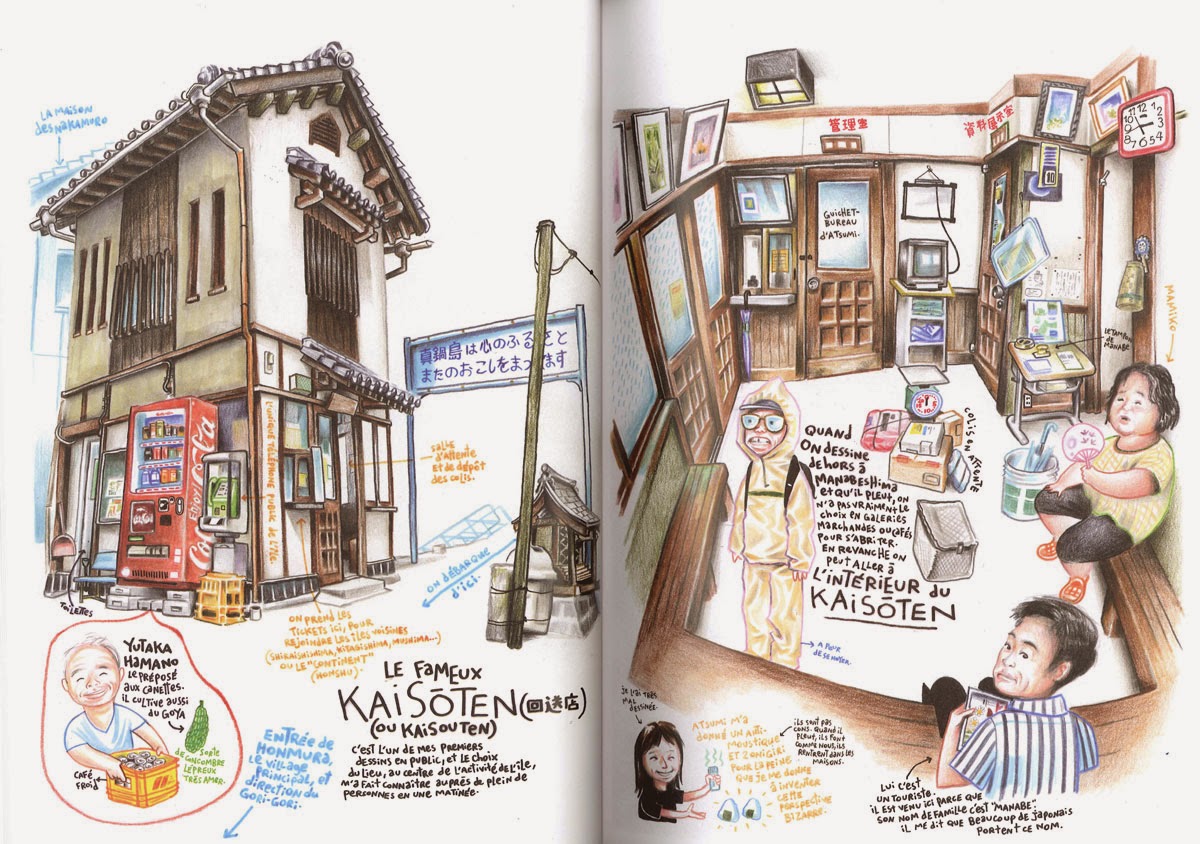 LA MAISON
DES NAKAMURO
真鍋島は心のふるさと
またのおこしをまってます
Coca-Cola
ENJOY
L'UNIQUE TÉLÉPHONE PUBLIC DE L'ÎLE.
SALLE
D'ATTENTE
ET DE DÉPÔT
DES COLIS.
ON DÉBARQUE
D'ICI.
TOILETTES
ON PREND LES
TICKETS ICI, POUR
REJOINDRE LES ÎLES VOISINES
(SHIRAISHISHIMA, KITAGISHIMA, MUSHIMA...)
OU LE "CONTINENT"
(HONSHU).
YUTAKA
HAMANO
LE PRÉPOSÉ
AUX CANETTES.
IL CULTIVE AUSSI
DU GOYA
SORTE
DE CONCOMBRE
LÉPREUX
TRÈS AMER.
CAFÉ
FROID
ENTRÉE DE
HONMURA,
LE VILLAGE
PRINCIPAL, ET
DIRECTION DU
GORI-GORI.
LE FAMEUX
KAISŌTEN (回送店)
(OU KAISOUTEN)
C'EST L'UN DE MES PREMIERS
DESSINS EN PUBLIC, ET LE CHOIX
DU LIEU, AU CENTRE DE L'ACTIVITÉ DE L'ÎLE,
M'A FAIT CONNAÎTRE AUPRÈS DE PLEIN DE
PERSONNES EN UNE MATINÉE.
管理室
資料展示室
11 12 1
10 2
9 3
8 4
7 6 5
10
GUICHET-
BUREAU
D'ATSUMI.
LE TAMPON
DE
MANABE
MAMIKO
COLIS EN ATTENTE
QUAND
ON DESSINE
DEHORS À
MANABESHIMA
ET QU'IL PLEUT, ON
N'A PAS VRAIMENT LE
CHOIX EN GALERIES
MARCHANDES OU CAFÉS
POUR S'ABRITER.
EN REVANCHE ON
PEUT ALLER À
L'INTÉRIEUR DU
KAISŌTEN
A PEUR
DE SE NOYER.
JE L'AI TRÈS
MAL
DESSINÉE.
ATSUMI M'A
DONNÉ UN ANTI-
MOUSTIQUE
ET 2 ONIGIRI
POUR LA PEINE
QUE JE ME DONNE
À INVENTER
CETTE
PERSPECTIVE
BIZARRE.
ILS SONT PAS
CONS. QUAND IL
PLEUT, ILS FONT
COMME NOUS, ILS
RENTRENT DANS LES
MAISONS.
LUI C'EST
UN TOURISTE.
IL EST VENU ICI PARCE QUE
SON NOM DE FAMILLE C'EST "MANABE".
IL ME DIT QUE BEAUCOUP DE JAPONAIS
PORTENT CE NOM.